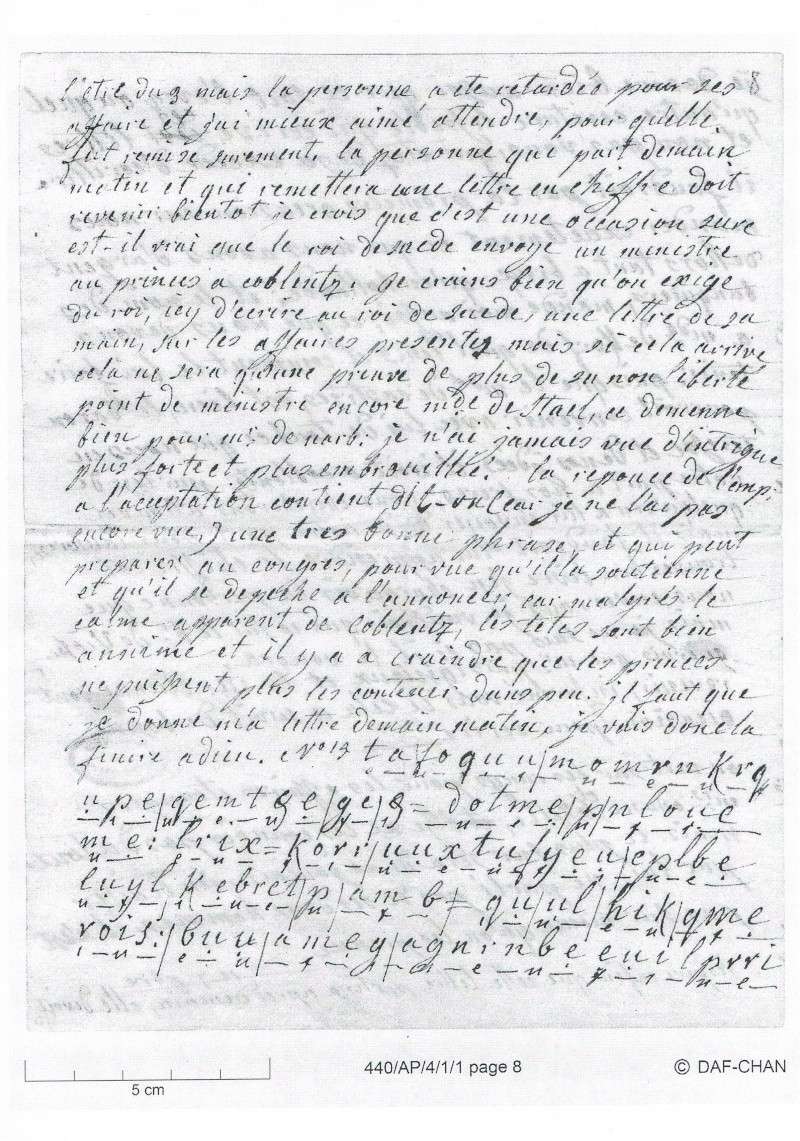 l'etre du 3 mais la personne a ete retardéo pour ses 8
affaire et j'ai mieux aimé attendre, pour qu'elle
fut remise surement. la personne que part demain
matin et qui remettera une lettre en chiffre doit
revenir bientot je crois que c'est une occasion sure
est-il vrai que le roi de suede envoye un ministre
au princes a coblentz. je crains bien qu'on exige
du roi, icy d'ecrire au roi de suede, une lettre de sa
main, sur les affaires presentes mais si cela arrive
cela ne sera qu'une preuve de plus de sa non liberté
point de ministre encore mde de Stael, ce demenne
bien pour mr: de narb: je n'ai jamais vue d'intrigue
plus forte et plus embrouillé. la reponce de l'emp:
a l'acceptation contient dit-on (car je ne l'ai pas
encore vue,) une tres bonne phrase, et qui peut
preparer au congres, pour vue qu'il la soutienne
et qu'il se depeche a l'annoncer car malgres le
calme apparent de Coblentz, les tetes sont bien
annimé et il y a a craindre que les princes
ne puissent plus les contenir dans peu. il faut que
je donne m'a lettre demain matin, je vais donc la
finire adieu. No 13 ta/foquu/momrn K/rq
upe/qemtge/ge3= dotme/pnlouc
me: lrix= K/orr/uuxtu/yeu/cplbe
luyl K/ebret/p/amb= qu/ul/hik/qme
rois:/buu/ameg/agninbeeuil prri
440/AP/4/1/1 page 8
© DAF-CHAN
5 cm